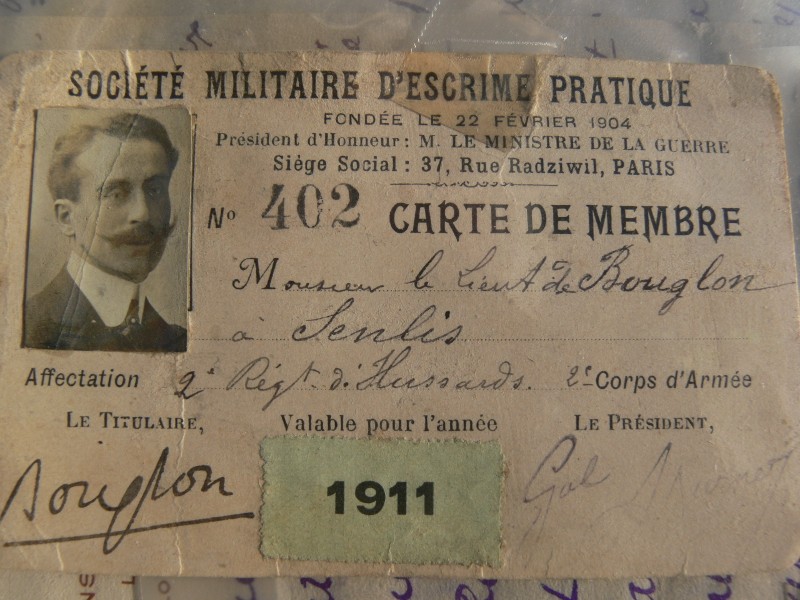 SOCIÉTÉ MILITAIRE D'ESCRIME PRATIQUE
FONDÉE LE 22 FÉVRIER 1904
Président d'Honneur: M. LE MINISTRE DE LA GUERRE
Siége Social : 37, Rue Radziwil, PARIS
No 402 CARTE DE MEMBRE
Monsieur le Lieut de Bouglon
à Senlis
Affectation 2e Régt. d'Hussards. 2e Corps d'Armée
LE TITULAIRE, Valable pour l'année LE PRÉSIDENT,
Bouglon 1911 Gal